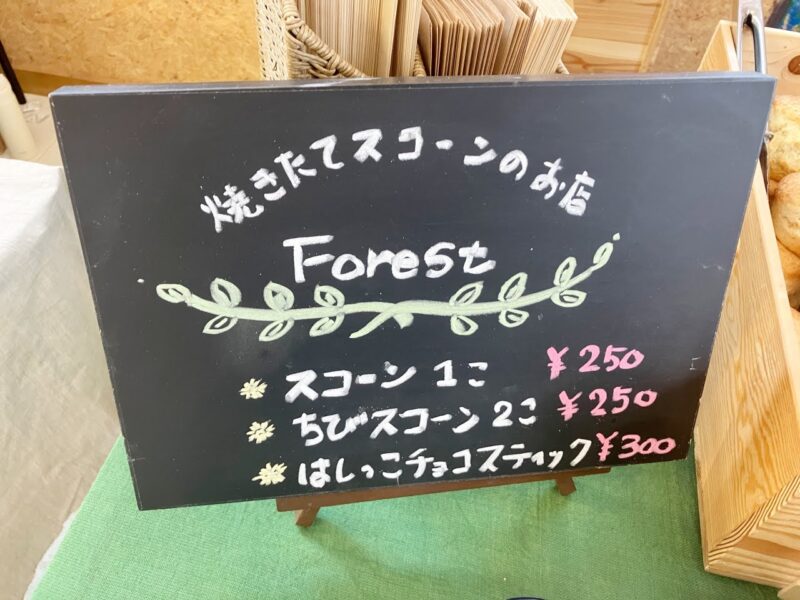 焼きたてスコーンのお店
Forest
スコーン 1こ ¥250
ちびスコーン 2こ ¥250
はしっこチョコスティック ¥300